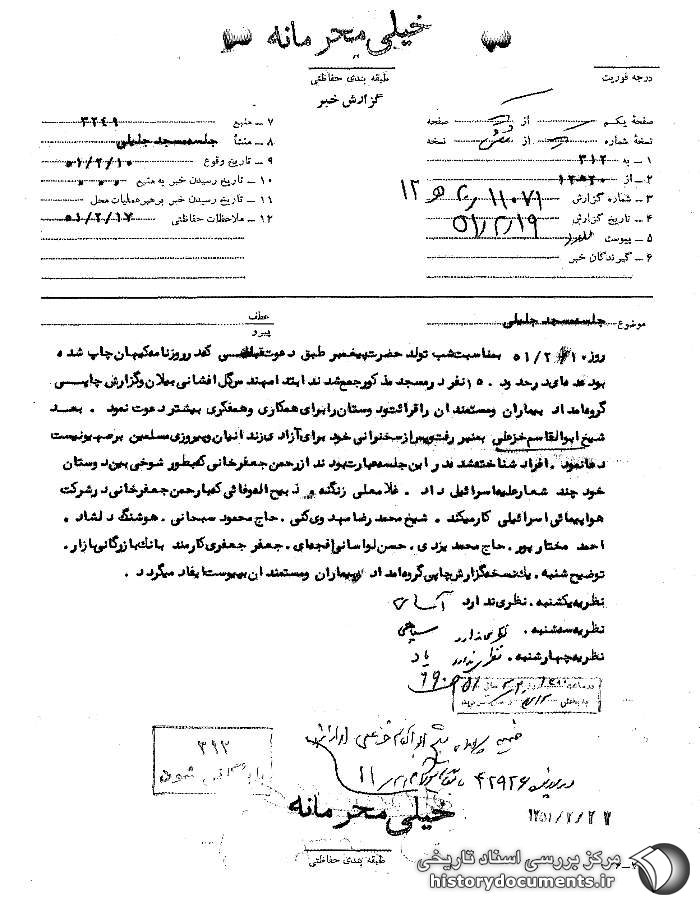 خیلی محرمانه
طبقه بندی حفاظتی
درجه فوریت
گزارش خبر
صفحهٔ یکم از صفحه
نسخهٔ شماره از نسخه
۱ – به ۳۱۲
۲ – از ۱۲۵۲۰
۳ – شماره گزارش ۱۱۰۷۹ / ۲۰ هـ ۱۲
۴ – تاریخ گزارش ۵۱/۲/۱۹
۵ – پیوست
۶ – گیرندگان خبر
۷ – منبع ۳۲۴۹
۸ – منشأ جلسه مسجد جلیلی
۹ – تاریخ وقوع ۵۱/۲/۱۰
۱۰ – تاریخ رسیدن خبر به منبع
۱۱ – تاریخ رسیدن خبر برهبر عملیات محل
۱۲ – ملاحظات حفاظتی ۵۱/۲/۱۷
موضوع جلسه مسجد جلیلی
عطف
پیرو
روز ۱۰/۲/۵۱ بمناسبت شب تولد حضرت پیغمبر طبق دعوت قبلی که در روزنامه کیهان چاپ شده
بود عده‌ای در حدود ۱۵۰ نفر در مسجد مذکور جمع شدند ابتدا مهندس گل افشانی بیلان و گزارش چاپی
گروه امداد بیماران و مستمندان را قرائت و دوستان را برای همکاری و همفکری بیشتر دعوت نمود . بعد
شیخ ابوالقاسم خزعلی بمنبر رفت و پس از سخنرانی خود برای آزادی زندانیان و پیروزی مسلمین بر صهیونیست
دعا نمود . افراد شناخته شده در این جلسه عبارت بودند از رحمن جعفرخانی که بطور شوخی بین دوستان
خود چند شعار علیه اسرائیل داد . غلامعلی زنگنه و ذبیح اله وفائی که با رحمن جعفرخانی در شرکت
هواپیمائی اسرائیلی کار میکند . شیخ محمد رضا مهدوی کنی . حاج محمود سبحانی . هوشنگ دلشاد .
احمد مختارپور . حاج محمد یزدی . حسن لواسانی افجه‌ای . جعفر جعفری کارمند بانک بازرگانی بازار .
توضیح شنبه . یک نسخه گزارش چاپی گروه امداد بیماران و مستمندان به پیوست ایفاد میگردد .
نظریه یکشنبه . نظری ندارد
نظریه سه‌شنبه . نظری ندارد
نظریه چهارشنبه . نظری ندارد
۳۱۲
بایگانی شود
۴۲۹۲۶
۱۳۵۱/۲/۲۷
خیلی محرمانه
طبقه بندی حفاظتی
مرکز بررسی اسناد تاریخی
historydocuments.ir